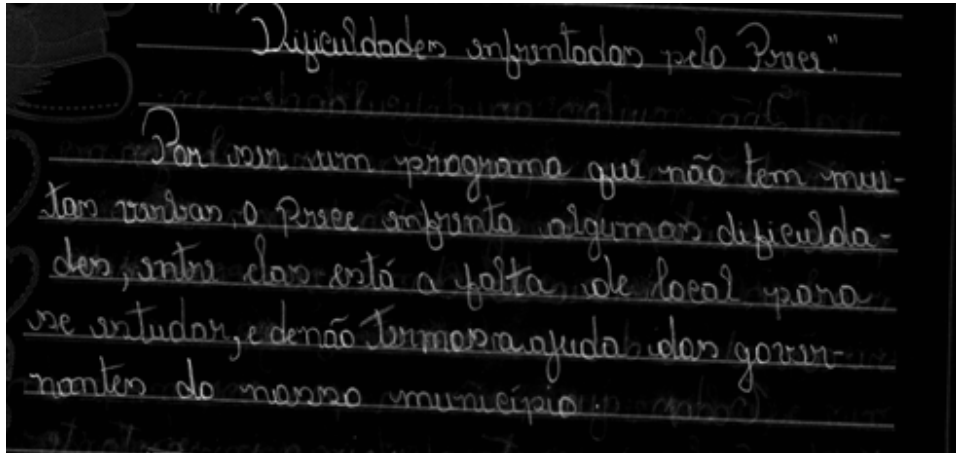 "Dificuldades enfrentadas pelo Prece".
Por ser um programa que não tem mui-
tas verbas, o Prece enfrenta algumas dificulda-
des, entre elas está a falta de local para
se estudar, e de não termos a ajuda dos gover-
nantes do nosso município.